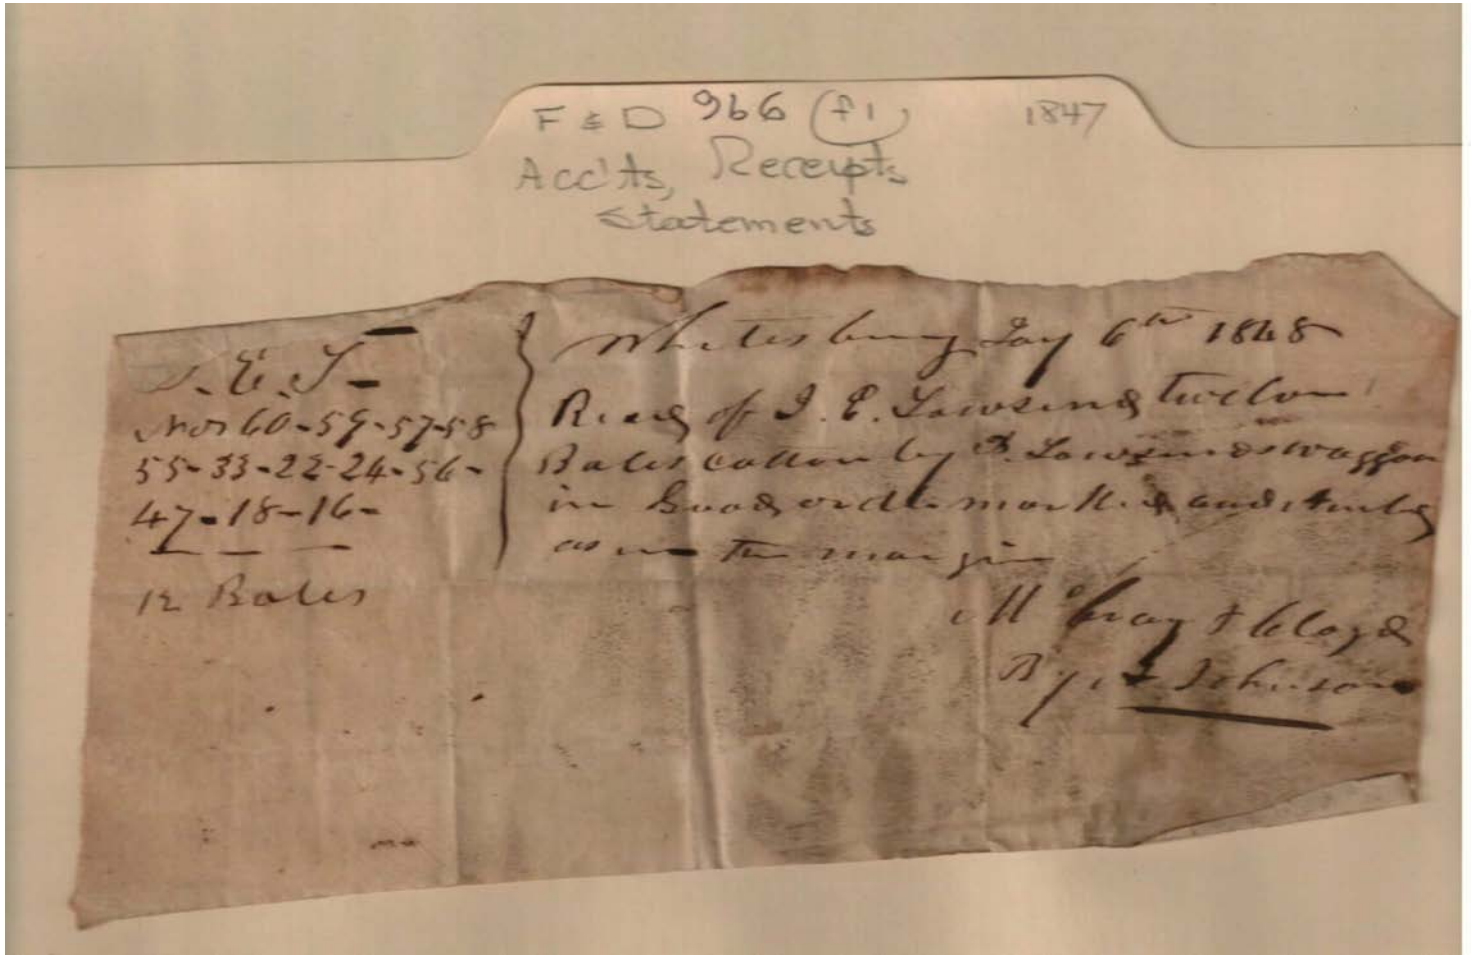 F & D 966 (f1) 1847
Acc'ts, Receipts
Statements
S. E. T.
Nos 60-59-57-58
55-33-22-24-56-
47-18-16-
12 Bales
Whitesburg Jay 6th 1848
Recd of S. E. Townsend twelve
Bales cotton by P. Townsends waggon
in Good order marked and
as in the margin
McCray & Cloyd
By Johnson